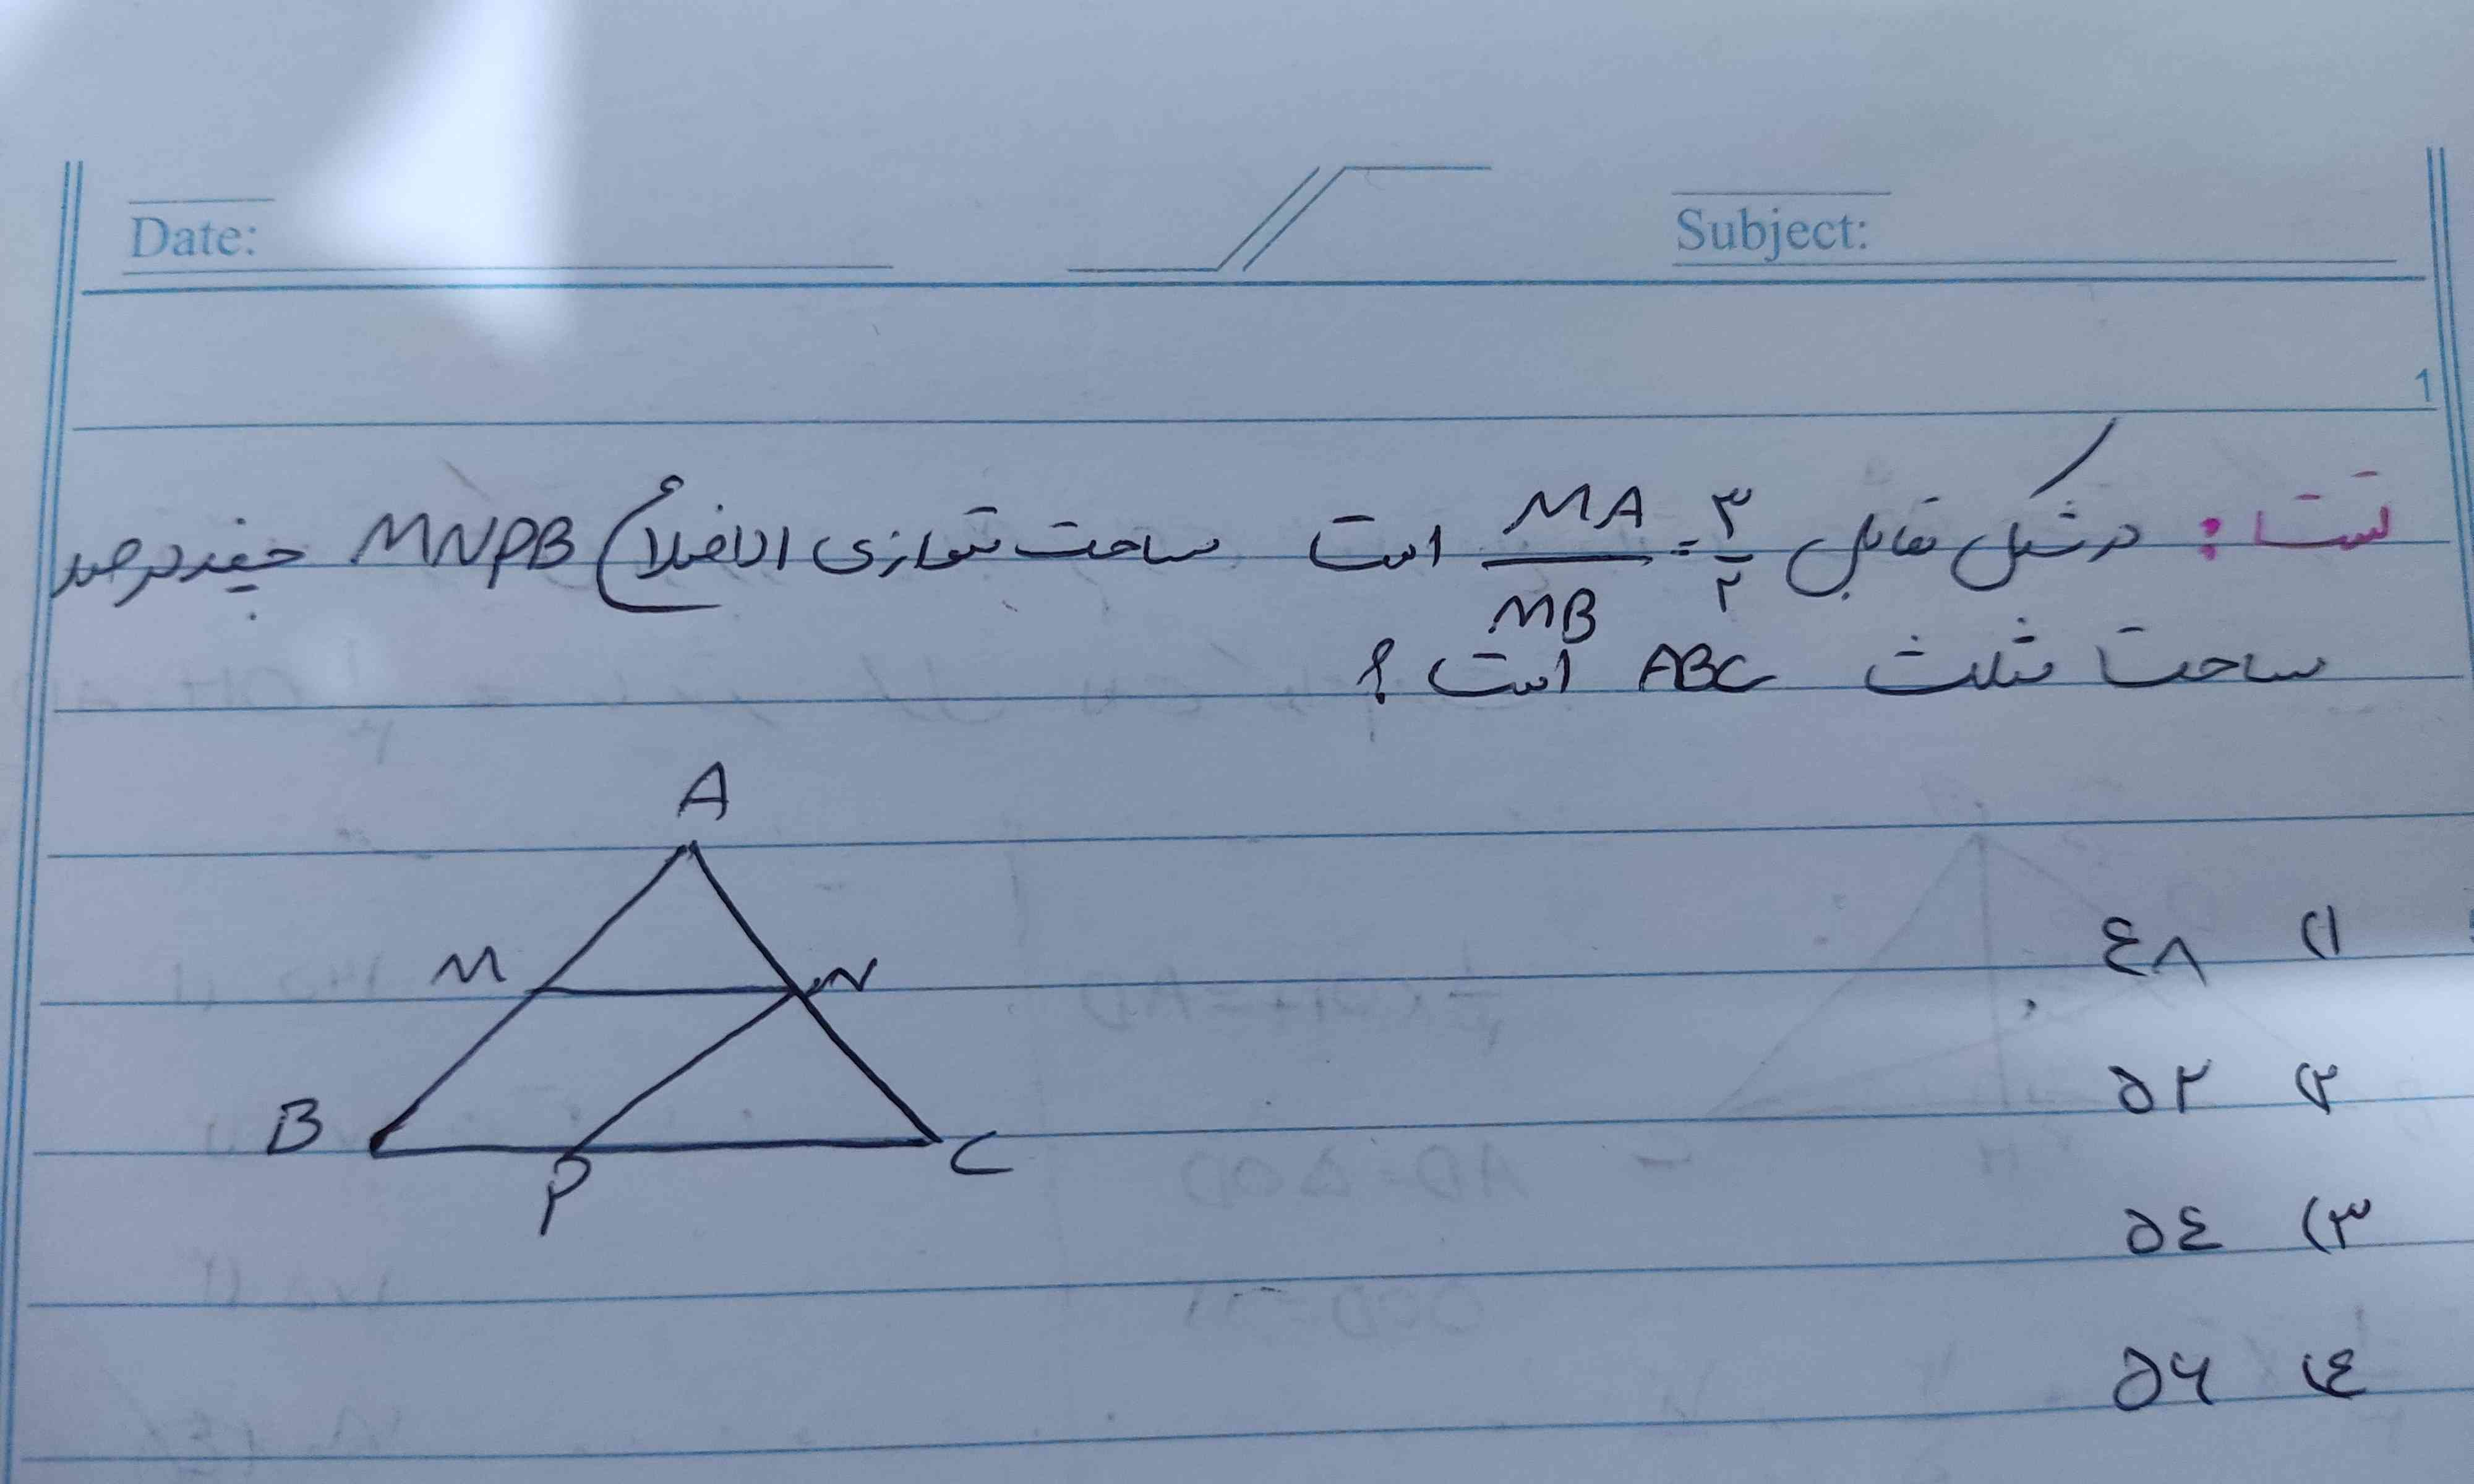 Date: Subject:
1
تست: در شکل مقابل MA/MB = ۳/۲ است مساحت متوازی الاضلاع MNPB چند درصد
مساحت مثلث ABC است؟
A
M N
B P C
۱) ۴۸
۲) ۵۲
۳) ۵۴
۴) ۵۶